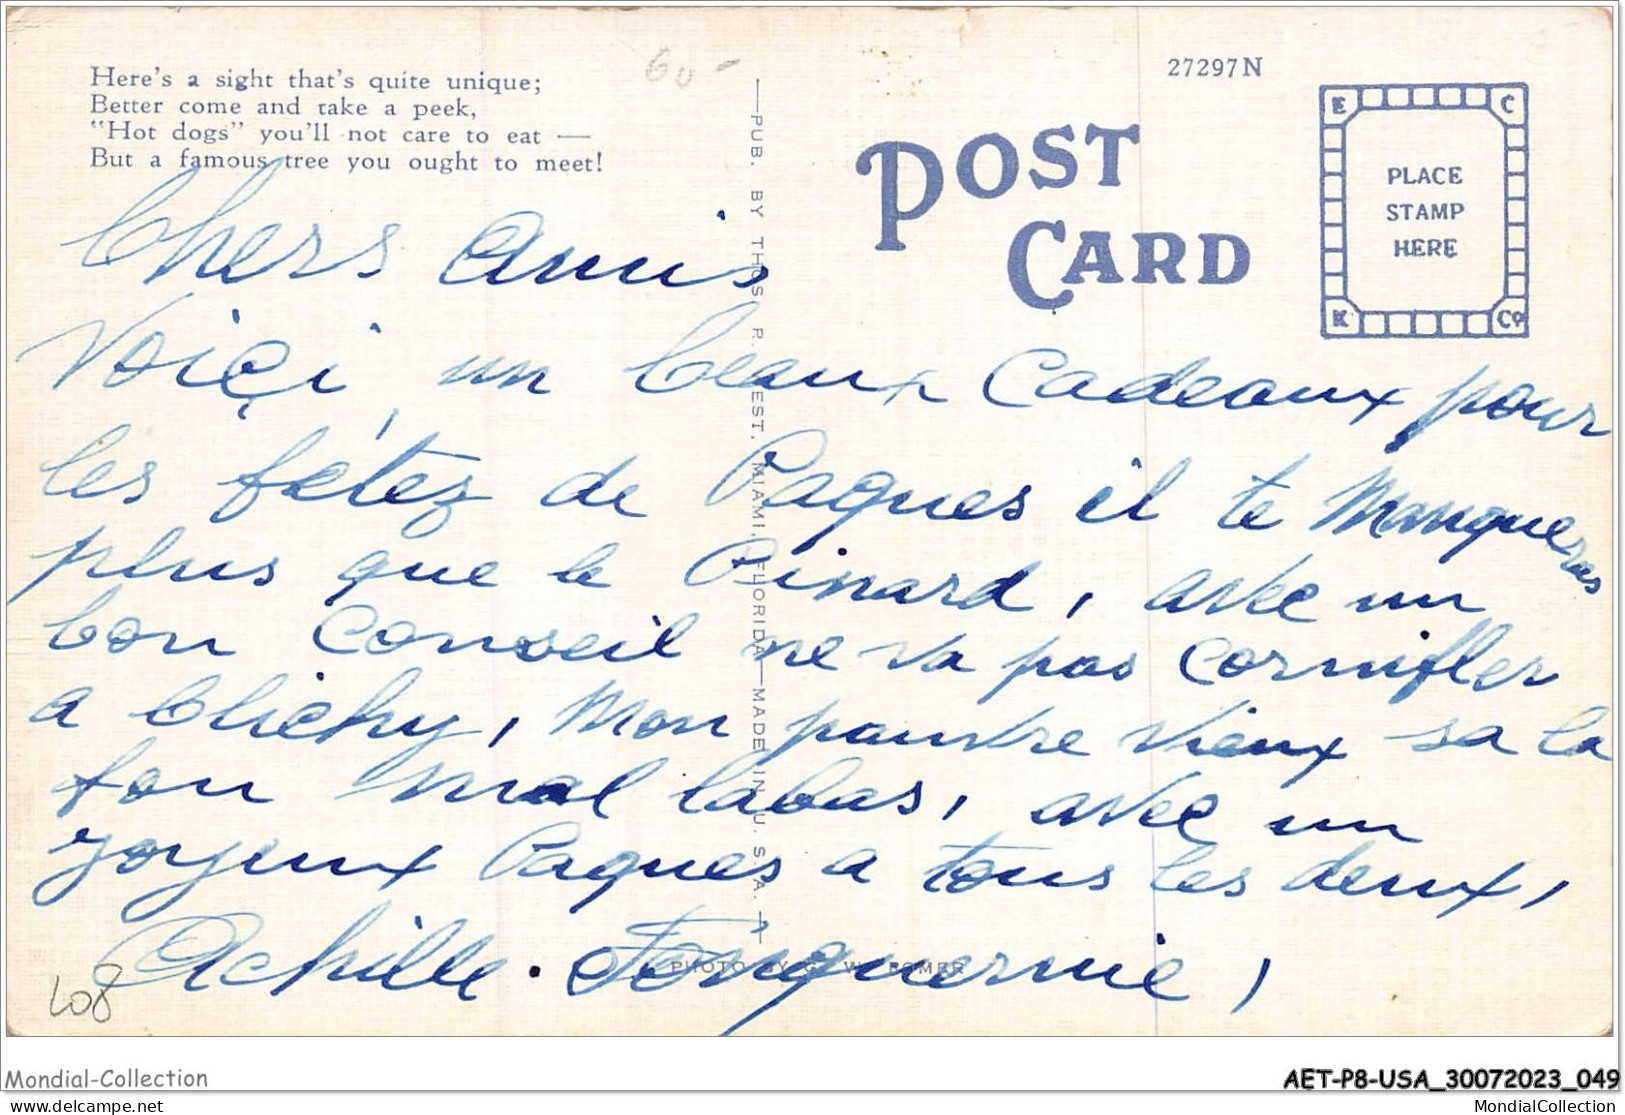 Here's a sight that's quite unique;
Better come and take a peek,
"Hot dogs" you'll not care to eat —
But a famous tree you ought to meet!
60 -
27297N
POST
CARD
E C
PLACE
STAMP
HERE
K Co
PUB. BY THOS. R. WEST, MIAMI, FLORIDA — MADE IN U. S. A.
Chers Amis
Voiçi un beaux Cadeaux pour
les fêtez de Paques il te Manqueras
plus que le Pinard, avec un
bon Conseil ne va pas Cornifler
a Clichy, Mon pauvre Vieux sa la
fou mal labas, avec un
joyeux Paques a tous les deux,
Achille.
PHOTO BY G. W. ROMER
108
Mondial-Collection
AET-P8-USA_30072023_049
delcampe.net
MondialCollection